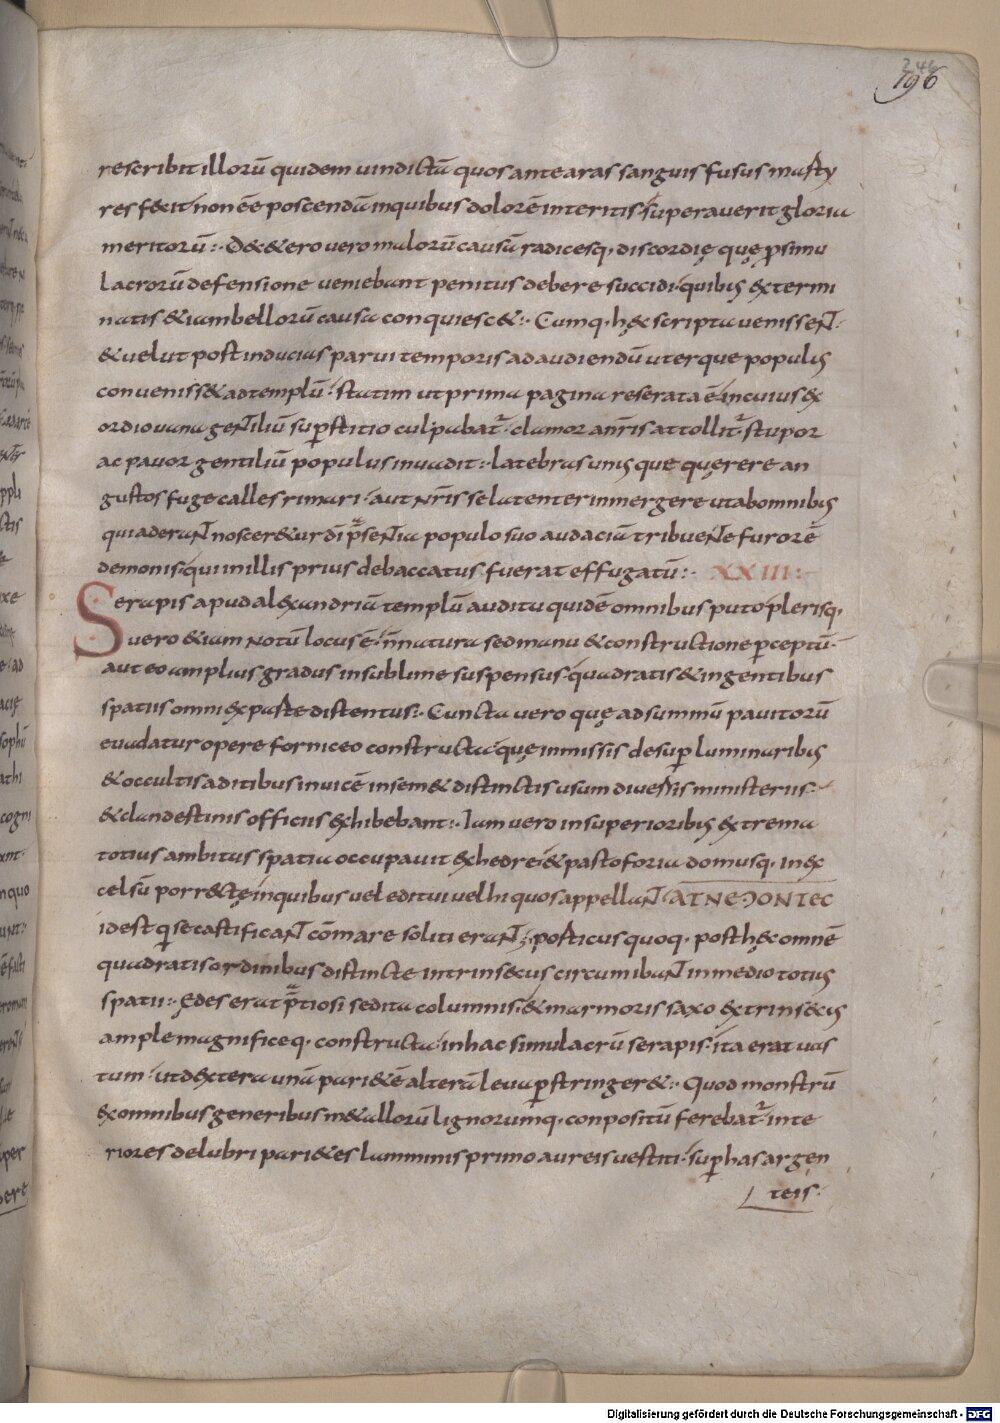 196
rescribit illorū quidem uindictā quos ante aras sanguis fusus marty
res fecit non ēe poscendā in quibus dolorē interitis superauerit gloria
meritorū: D&&ero uero malorū causā radicesq· discordię quę p simu
lacrorū defensione ueniebant penitus debere succidi· quibus extermi
natis & iam bellorū causa conquiesc&:· Cumq· hęc scripta uenissent·
& uelut post inducias parui temporis ad audiendū uterque populus
conueniss& ad templū· statim ut prima pagina reserata ē in cuius ex
ordio uana gentiliū supstitio culpabat· clamor a nr̄is attollit stupor
ac pauor gentiliū populus inuadit:· latebras unusque quęrere an
gustos fuge calles rimari· aut nr̄is se latenter inmergere ut ab omnibus
qui aderant noscer&ur dī p̄sentia populo suo audaciā tribuente furorē
demonis qui in illis prius debaccatus fuerat effugatū:· XXIII:
Serapis apud alexandriā templū auditu quidē omnibus puto plerisq·
uero &iam notū locus ē· n̄ natura sed manu & constructione pceptū·
aut eo amplius gradus in sublime suspensus· quadratis & ingentibus
spatiis omni ex parte distentus:· Cuncta uero quę ad summū pauitorū
euadatur opere forniceo constructa quę inmissis desup luminaribus
& occultis aditibus inuicē insem& distinctis usum diuersis ministeriis:
& clandestinis officiis exhibebant:· Iam uero in superioribus extrema
totius ambitus spatia occupauit exhedre & pastoforia domusq· in ex
celsū porrectę in quibus uel editui uel hi quos appellant
id est qui se castificant cōmare soliti erant; posticus quoq· post hęc omnē
quadratis ordinibus distincte intrinsecus circumibant in medio totius
spatii:· Ędes erat p̄tiosi sedita columnis· & marmoris saxo extrinsecus
ample magnificeq· constructa· in hac simulacrū serapis· ita erat uas
tum· ut dextera unā pari&ē alterā leua pstringer&:· Quod monstrū
ex omnibus generibus m&allorū lignorumq· conpositū ferebat· inte
riores delubri pari&es lamminis primo aureis uestiti· sup has argen
teis·
Digitalisierung gefördert durch die Deutsche Forschungsgemeinschaft - DFG